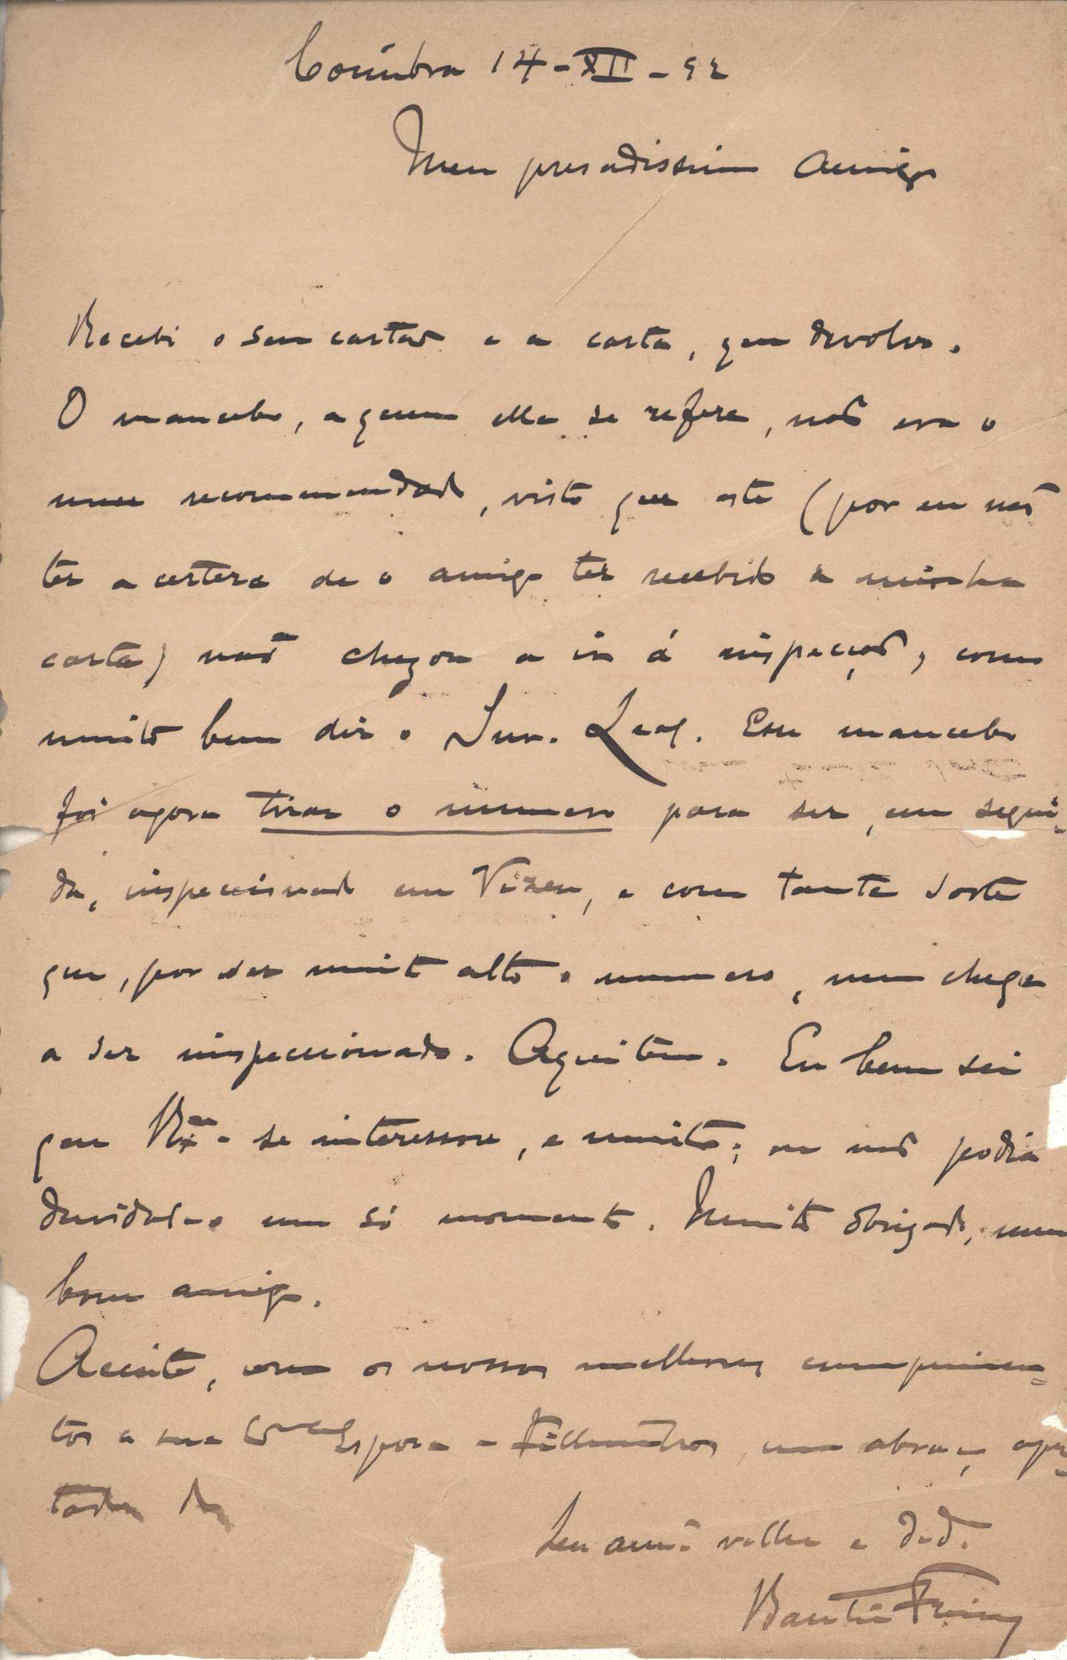 Coimbra 14-XII-92
Meu presadissimo Amigo
Recebi o seu cartão e a carta, que devolvo.
O mancebo, a quem ella se refere, não era o
meu recommendado, visto que este (por eu não
ter a certeza de o amigo ter recebido a minha
carta) não chegou a ir á inspecção, como
muito bem diz o Snr. Leal. Esse mancebo
foi agora tirar o numero para ser, em segui-
da, inspeccionado em Vizeu, e com tanta sorte
que, por ser muito alto o numero, nem chega
a ser inspeccionado. Aqui tem. Eu bem sei
que V. Exª. se interessou, e muito; eu não podia
duvidal-o um só momento. Muito obrigado, meu
bom amigo.
Acceite, com os nossos melhores cumprimen-
tos a sua Esposa e Filhinhos, um abraço aper-
tado de
Seu amº velho e ded.